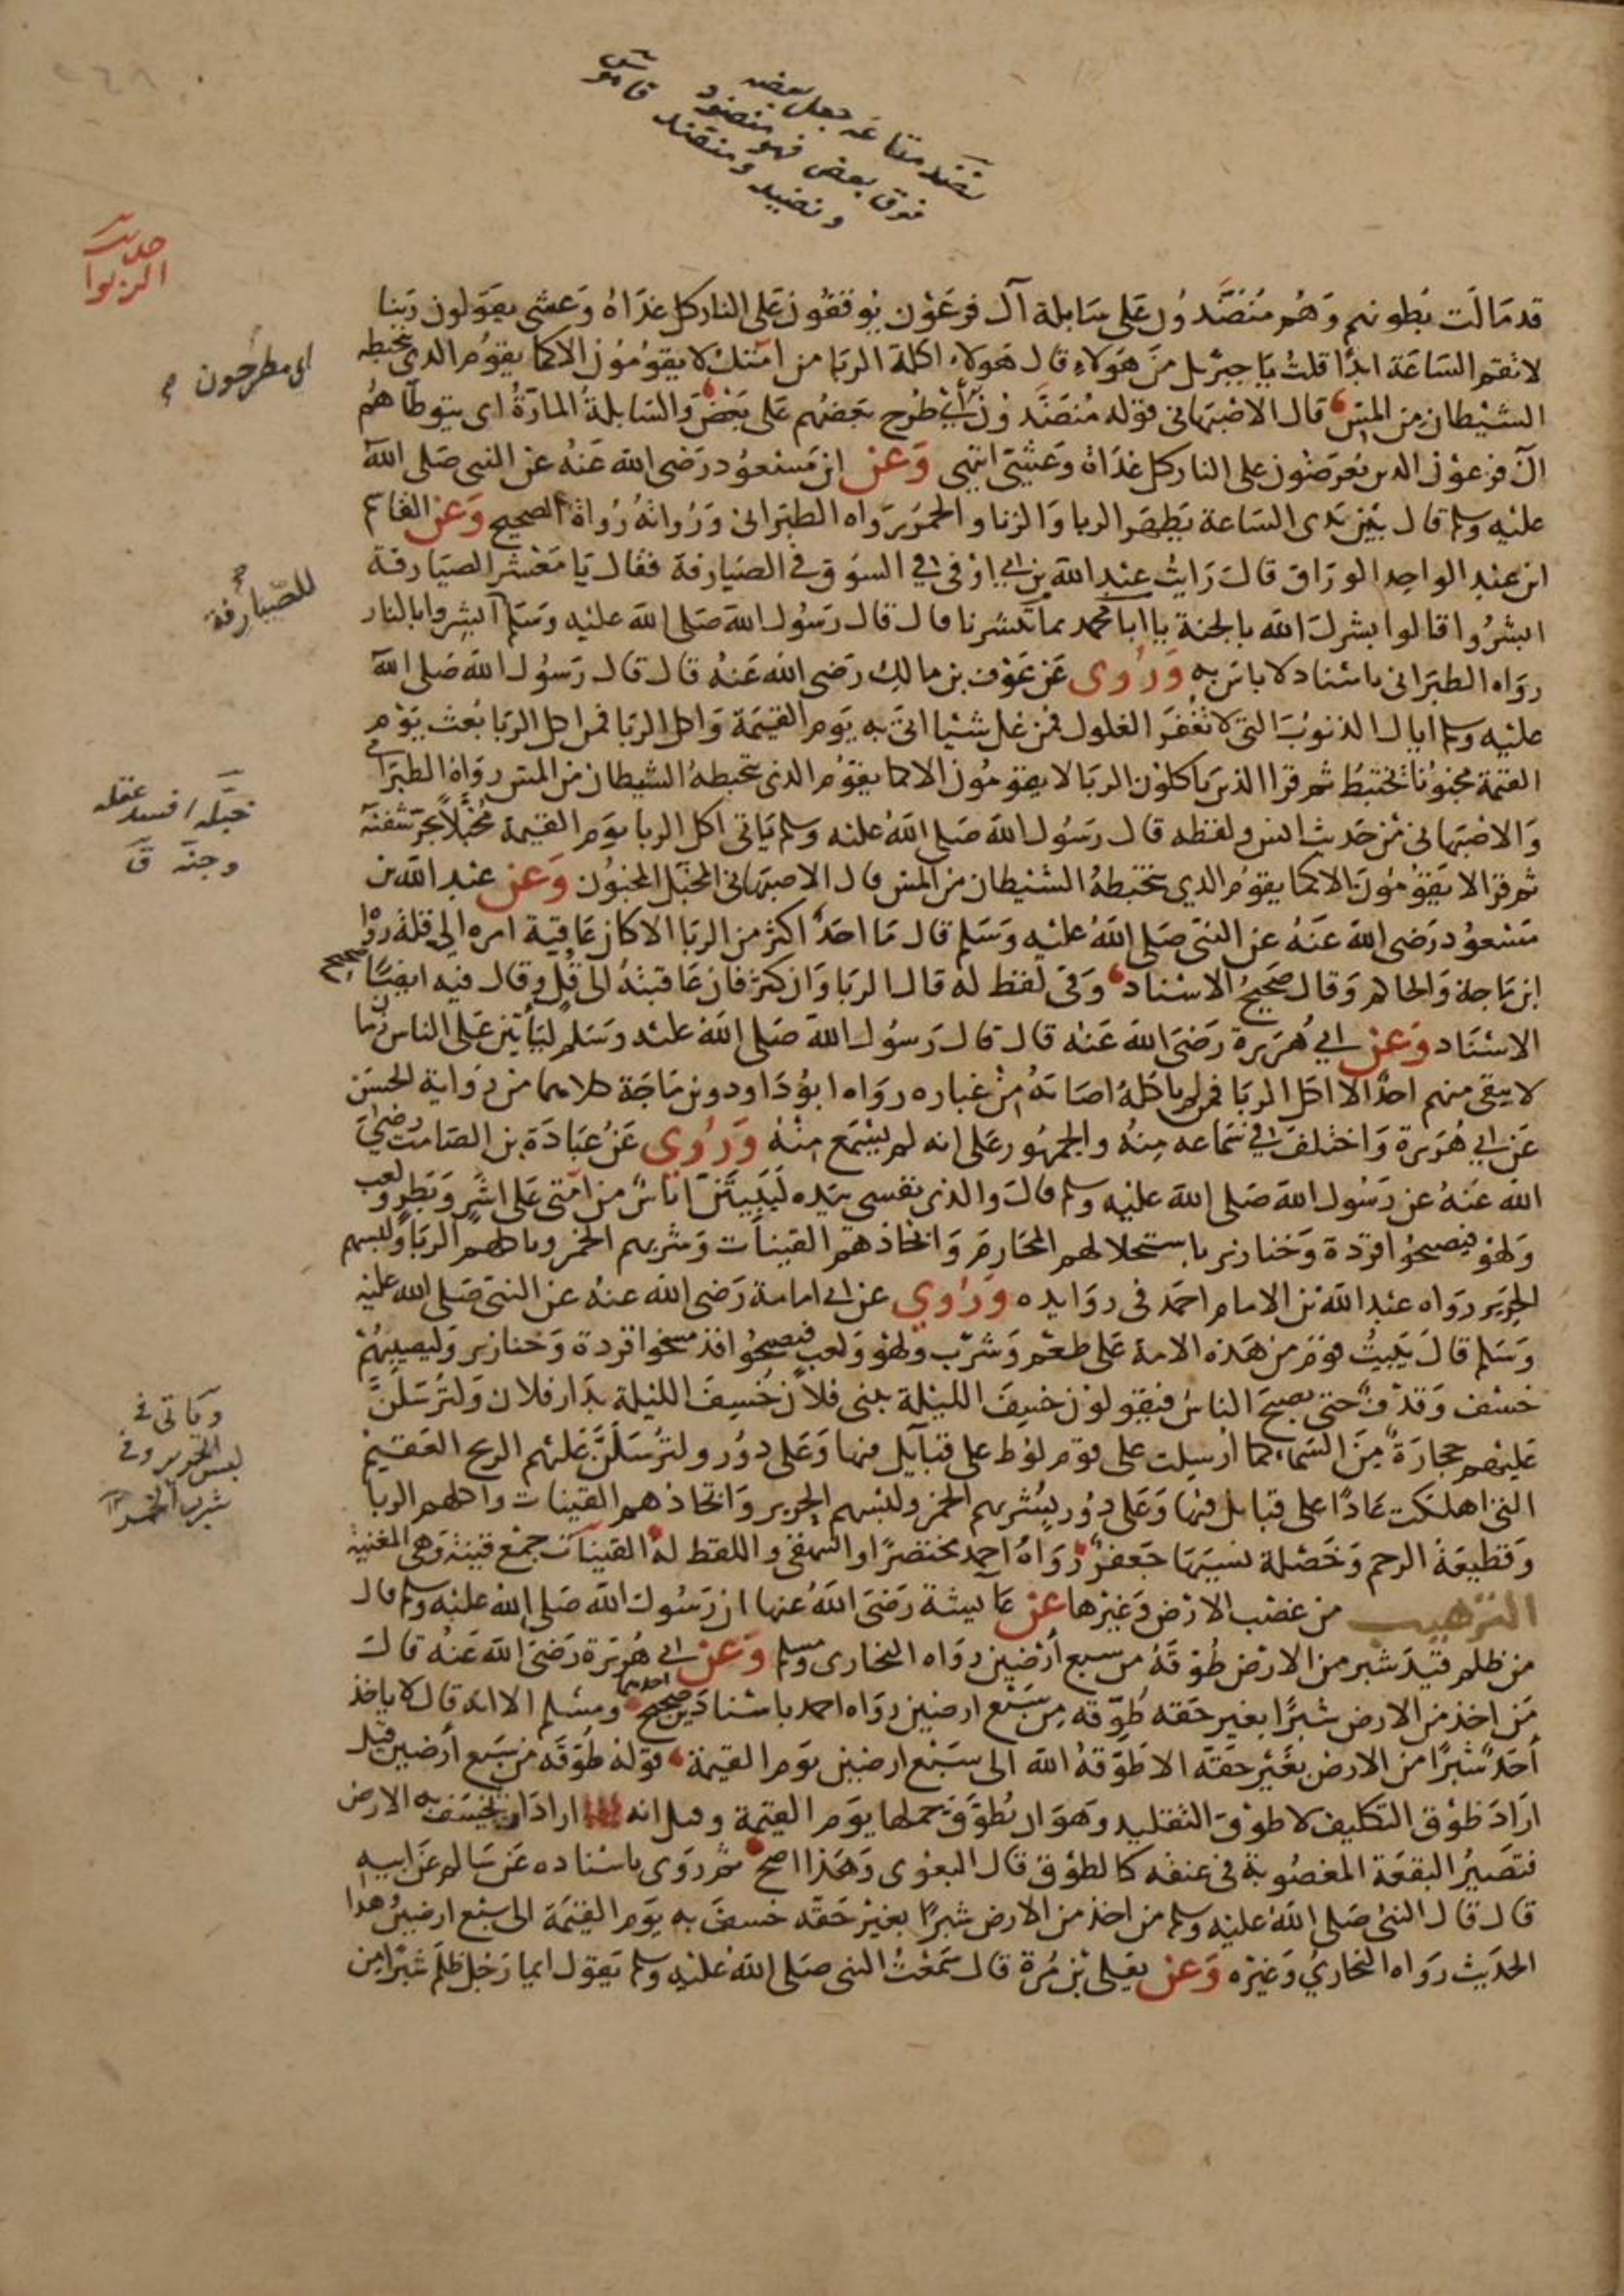 نضد متاعه جعل بعضه
فوق بعض فهو منضود
ونضيد ومنضد قاموس
حديث
الربوا
قد مالت بطونهم وهم منضدون على سابلة آل فرعون يوقفون على النار كل غداة وعشي يقولون ربنا
لا تقم الساعة ابدا قلت يا جبريل من هولاء قال هولاء اكلة الربا من امتك لا يقومون الا كما يقوم الذي يتخبطه
اي مطرحون
الشيطان من المس قال الاصبهاني قوله منضدون أي طرح بعضهم على بعض والسابلة المارة اى يتوطاهم
آل فرعون الدين يعرضون على النار كل غداة وعشي انتهى وعن ابن مسعود رضى الله عنه عن النبى صلى الله
عليه وسلم قال بين يدى الساعة يظهر الربا والزنا والخمر رواه الطبرانى ورواته رواة الصحيح وعن القاسم
ابن عبد الواحد الوراق قال رايت عبد الله بن ابي اوفى في السوق في الصيارفة فقال يا معشر الصيارفة
للصيارفة
ابشروا قالوا بشرك الله بالجنة يا ابا محمد بما تبشرنا قال قال رسول الله صلى الله عليه وسلم ابشروا بالنار
رواه الطبرانى باسناد لا باس به وروى عن عوف بن مالك رضى الله عنه قال قال رسول الله صلى الله
عليه وسلم اياك الذنوب التي لا تغفر الغلول فمن غل شيئا اتى به يوم القيمة واكل الربا فمن اكل الربا بعث يوم
القيمة مجنونا يختبط ثم قرا الذين ياكلون الربا لا يقومون الا كما يقوم الذى يتخبطه الشيطان من المس رواه الطبرانى
خبله افسد عقله
وجنه ق
والاصبهانى من حديث انس ولفظه قال رسول الله صلى الله عليه وسلم ياتى اكل الربا يوم القيمة مخبلا يجر شفته
ثم قرا لا يقومون الا كما يقوم الذي يتخبطه الشيطان من المس قال الاصبهانى المخبل المجنون وعن عبد الله بن
مسعود رضى الله عنه عن النبى صلى الله عليه وسلم قال ما احد اكثر من الربا الا كان عاقبة امره الى قلة رواه
ابن ماجة والحاكم وقال صحيح الاسناد وفى لفظ له قال الربا وان كثر فان عاقبته الى قل وقال فيه ايضا صحيح
الاسناد وعن ابي هريرة رضى الله عنه قال قال رسول الله صلى الله عليه وسلم لياتين على الناس زمان
لا يبقى منهم احد الا اكل الربا فمن لم ياكله اصابه من غباره رواه ابو داود وبن ماجة كلاهما من رواية الحسن
عن ابي هريرة واختلف في سماعه منه والجمهور على انه لم يسمع منه وروي عن عبادة بن الصامت رضي
الله عنه عن رسول الله صلى الله عليه وسلم قال والذى نفسى بيده ليبيتن اناس من امتى على اشر وبطر ولعب
ولهو فيصبحوا قردة وخنازير باستحلالهم المحارم واتخاذهم القينات وشربهم الخمر وباكلهم الربا ولبسهم
الحرير رواه عبد الله بن الامام احمد فى زوايده وروي عن ابى امامة رضى الله عنه عن النبى صلى الله عليه
وسلم قال يبيت قوم من هذه الامة على طعم وشرب ولهو ولعب فيصبحوا قد مسخوا قردة وخنازير وليصيبنهم
وياتى فى
لبس الحرير وفى
شرب الخمر
خسف وقذف حتى يصبح الناس فيقولون خسف الليلة ببنى فلان خسف الليلة بدار فلان ولترسلن
عليهم حجارة من السماء كما ارسلت على قوم لوط على قبايل فيها وعلى دور ولترسلن عليهم الريح العقيم
التى اهلكت عادا على قبايل فيها وعلى دور بشربهم الخمر ولبسهم الحرير واتخاذهم القينات واكلهم الربا
وقطيعة الرحم وخصلة نسيها جعفر رواه احمد مختصرا والبيهقى واللفظ له القينات جمع قينة وهى المغنية
الترهيب من غضب الارض وغيرها عن عايشة رضى الله عنها ان رسول الله صلى الله عليه وسلم قال
من ظلم قيد شبر من الارض طوقه من سبع أرضين رواه البخارى ومسلم وعن ابي هريرة رضى الله عنه قال
من اخذ من الارض شبرا بغير حقه طوقه من سبع ارضين رواه احمد باسنادين احدهما صحيح ومسلم الا انه قال لا ياخذ
أحد شبرا من الارض بغير حقه الا طوقه الله الى سبع ارضين يوم القيمة قوله طوقه من سبع أرضين قيل
اراد طوق التكليف لا طوق التقليد وهو ان يطوق حملها يوم القيمة وقيل انه اراد ان يخسف به الارض
فتصير البقعة المغصوبة فى عنقه كالطوق قال البغوى وهذا اصح ثم روى باسناده عن سالم عن ابيه
قال قال النبى صلى الله عليه وسلم من اخذ من الارض شبرا بغير حقه خسف به يوم القيمة الى سبع ارضين وهذا
الحديث رواه البخاري وغيره وعن يعلى بن مرة قال سمعت النبى صلى الله عليه وسلم يقول ايما رجل ظلم شبرا من